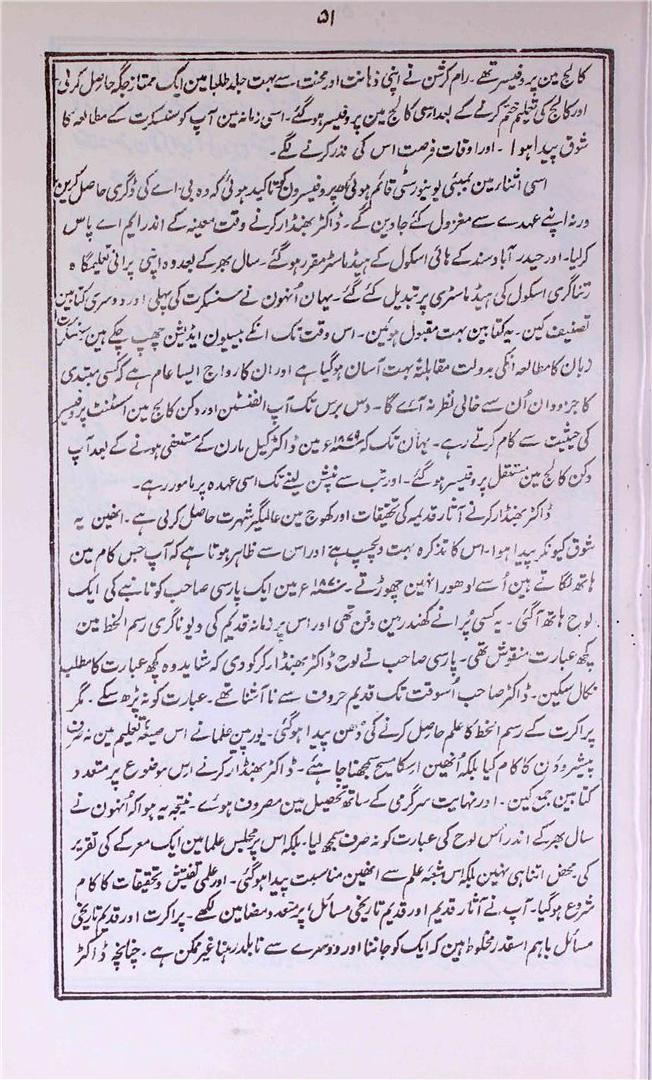 ۵۱
کالج مین پروفیسر تھے۔ رام کرشن نے اپنی ذہانت اور محنت سے بہت جلد طلبا مین ایک ممتاز جگہ حاصل کرلی
اور کالج کی تعلیم ختم کرنے کے بعد اسی کالج مین پروفیسر ہوگئے۔ اسی زمانہ مین آپ کو سنسکرت کے مطالعہ کا
شوق پیدا ہوا۔ اور اوقات فرصت اس کی نذر کرنے لگے۔
اسی اثناء مین بمبئی یونیورسٹی قائم ہوئی اور پروفیسرون کو تاکید ہوئی کہ وہ بی۔اے کی ڈگری حاصل کرین
ورنہ اپنے عہدے سے معزول کئے جاوین گے۔ ڈاکٹر بھنڈارکر نے وقت معینہ کے اندر ایم اے پاس
کرلیا۔ اور حیدرآباد سند کے ہائی اسکول کے ہیڈ ماسٹر مقرر ہوگئے۔ سال بھر کے بعد وہ اپنی پرانی تعلیمگاہ
رتناگری اسکول کی ہیڈ ماسٹری پر تبدیل کئے گئے۔ یہان اُنھون نے سنسکرت کی پہلی اور دوسری کتابین
تصنیف کین۔ یہ کتابین بہت مقبول ہوئین۔ اس وقت تک انکے بیسیون ایڈیشن چھپ چکے ہین سنسکرت
زبان کا مطالعہ انکی بدولت مقابلۃً بہت آسان ہوگیا ہے اور ان کا رواج ایسا عام ہے کہ کسی مبتدی
کا جزودان اُن سے خالی نظر نہ آئے گا۔ دس برس تک آپ الفنسٹین اور دکن کالج مین اسسٹنٹ پروفیسر
کی حیثیت سے کام کرتے رہے۔ یہان تک کہ ۱۸۷۹ء مین ڈاکٹر کیل ہارن کے مستعفی ہونے کے بعد آپ
دکن کالج مین مستقل پروفیسر ہوگئے۔ اور تب سے پنشن لینے تک اسی عہدہ پر مامور رہے۔
ڈاکٹر بھنڈارکر نے آثار قدیمہ کی تحقیقات اور کھوج مین عالمگیر شہرت حاصل کرلی ہے۔ انھین یہ
شوق کیونکر پیدا ہوا۔ اس کا تذکرہ بہت دلچسپ ہے اور اس سے ظاہر ہوتا ہے کہ آپ جس کام مین
ہاتھ لگاتے ہین اُسے ادھورا نہین چھوڑتے۔ ۱۸۷۰ء مین ایک پارسی صاحب کو تانبے کی ایک
لوح ہاتھ آگئی۔ یہ کسی پُرانے کھندر مین دفن تھی اور اس پر زمانہ قدیم کی دیوناگری رسم الخط مین
کچھ عبارت منقوش تھی۔ پارسی صاحب نے لوح ڈاکٹر بھنڈارکر کو دی کہ شاید وہ کچھ عبارت کا مطلب
نکال سکین۔ ڈاکٹر صاحب اُسوقت تک قدیم حروف سے نا آشنا تھے۔ عبارت کو نہ پڑھ سکے۔ مگر
پراکرت کے رسم الخط کا علم حاصل کرنے کی دھن پیدا ہوگئی۔ یورپین علما نے اس صیغۂ تعلیم مین نہ صرف
پیشروؤن کا کام کیا بلکہ اُنھین اسکا مسیح سمجھنا چاہئے۔ ڈاکٹر بھنڈارکر نے اس موضوع پر متعدد
کتابین جمع کین۔ اور نہایت سرگرمی کے ساتھ تحصیل مین مصروف ہوئے۔ نتیجہ یہ ہوا کہ اُنھون نے
سال بھر کے اندر اُس لوح کی عبارت کو نہ صرف سمجھ لیا۔ بلکہ اس پر مجلس علما مین ایک معرکے کی تقریر
کی محض اتنا ہی نہین بلکہ اس شعبۂ علم سے انھین مناسبت پیدا ہوگئی۔ اور علمی تفتیش و تحقیقات کا کام
شروع ہوگیا۔ آپ نے آثار قدیم اور قدیم تاریخی مسائل پر متعدد مضامین لکھے۔ پراکرت اور قدیم تاریخی
مسائل باہم اسقدر مخلوط ہین کہ ایک کو جاننا اور دوسرے سے نابلد رہنا غیر ممکن ہے۔ چنانچہ ڈاکٹر